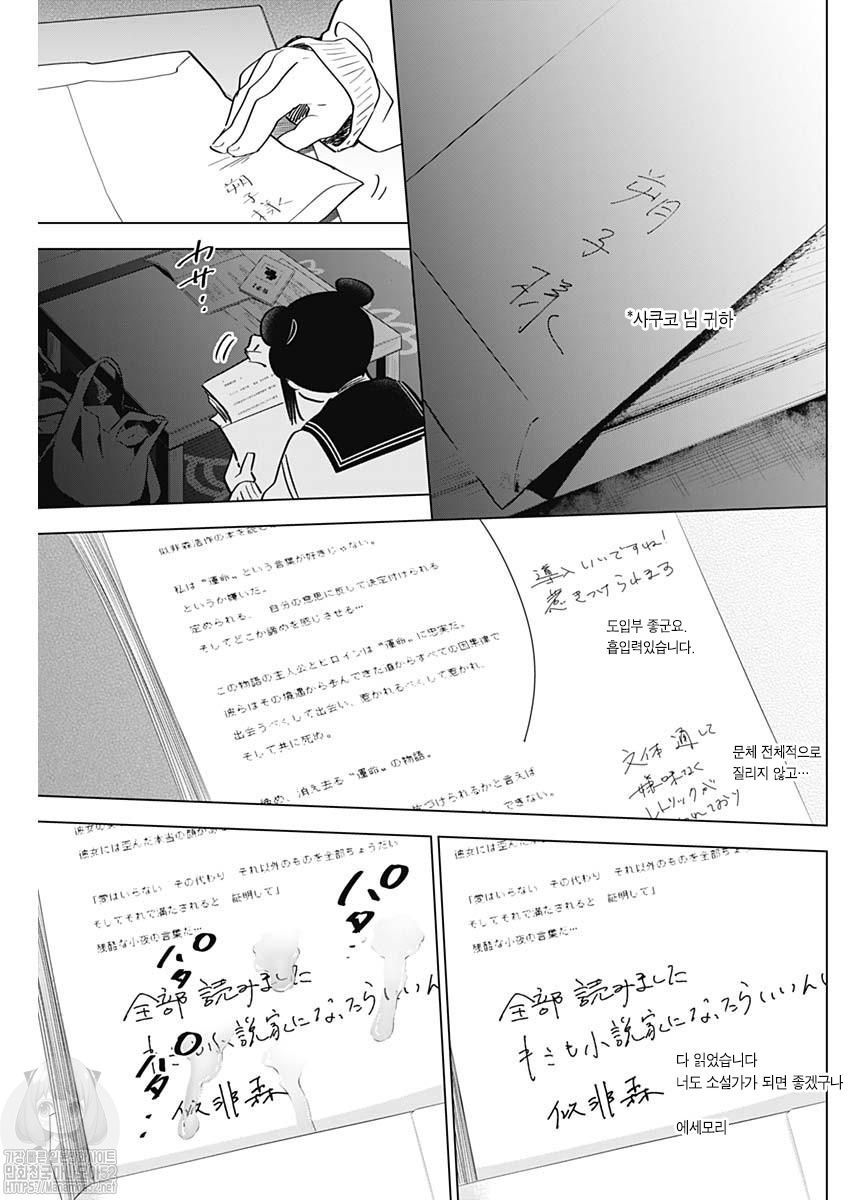 朔子様
*사쿠코 님 귀하
朔子様
わサ…
似非森浩作の本を読
私は“運命”という言葉が好きじゃない。
というか嫌いだ。
定められる、 自分の意思に反して決定付けられる
そしてどこか諦めを感じさせる…
この物語の主人公とヒロインは“運命”に忠実だ。
彼らはその境遇から歩んできた道からすべての因果律で
出会うべくして出会い、惹かれるべくして惹かれ、
そして共に死ぬ。
諦め、消え去る“運命”の物語。
づけられるかと言えば
できない。
導入いいですね!
惹きつけられます
도입부 좋군요.
흡입력있습니다.
文体通して
嫌味なく
レトリックが
れており
문체 전체적으로
질리지 않고…
彼女には歪んだ本当の顔があ
「愛はいらない その代わり それ以外のものを全部ちょう
そしてそれで満たされると 証明して」
残酷な小夜の言葉だ…
全部読みました
きみも小説家になったらいいん
似非森
다 읽었습니다
너도 소설가가 되면 좋겠구나
에세모리
彼女には歪んだ本当の顔があ
「愛はいらない その代わり それ以外のものを全部ちょうだい
そしてそれで満たされると 証明して」
残酷な小夜の言葉だ…
全部読みました
きみも小説家になったらいいん
似非森
パタ
パタ
パタ
가장 빠른 일본만화 사이트
만화천국 마나모아52
Manamoa52.net